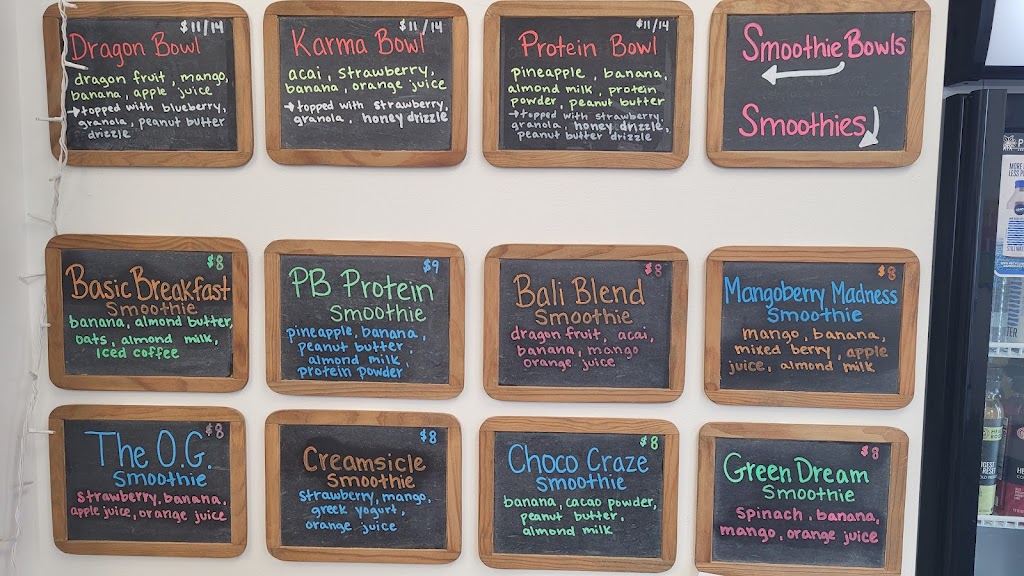 $11/14
Dragon Bowl
dragon fruit, mango,
banana, apple juice
→topped with blueberry,
granola, peanut butter
drizzle
$11/14
Karma Bowl
acai, strawberry,
banana, orange juice
→topped with strawberry,
granola, honey drizzle
$11/14
Protein Bowl
pineapple, banana,
almond milk, protein
powder, peanut butter
→topped with strawberry
granola, honey drizzle,
peanut butter drizzle
Smoothie Bowls
Smoothies
$8
Basic Breakfast
Smoothie
banana, almond butter,
oats, almond milk,
iced coffee
$9
PB Protein
Smoothie
pineapple, banana,
peanut butter,
almond milk,
protein powder
$8
Bali Blend
Smoothie
dragon fruit, acai,
banana, mango
orange juice
$8
Mangoberry Madness
Smoothie
mango, banana,
mixed berry, apple
juice, almond milk
$8
The O.G.
Smoothie
strawberry, banana,
apple juice, orange juice
$8
Creamsicle
Smoothie
strawberry, mango,
greek yogurt,
orange juice
$8
Choco Craze
Smoothie
banana, cacao powder,
peanut butter,
almond milk
$8
Green Dream
Smoothie
spinach, banana,
mango, orange juice
MORE